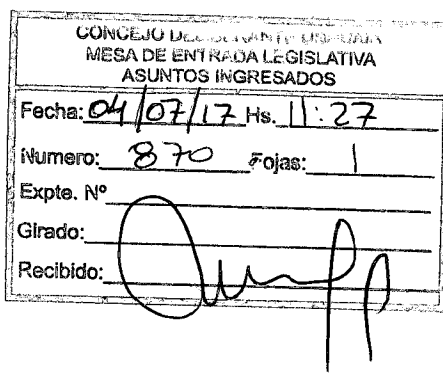 CONCEJO DELIBERANTE USHUAIA
MESA DE ENTRADA LEGISLATIVA
ASUNTOS INGRESADOS
Fecha: 04/07/17 Hs. 11:27
Numero: 870 Fojas: 1
Expte. Nº
Girado:
Recibido: